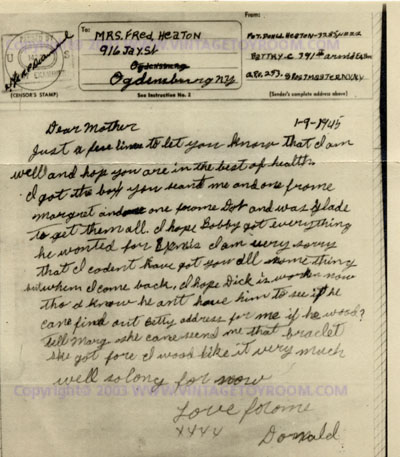 To:
MRS. FRED HEATON
916 Jay St
Ogdensburg
Ogdensburg NY
(CENSOR'S STAMP)
See Instruction No. 2
From:
Pvt. Donald Heaton-
Battry-C 791st
(Sender's complete address above)
Copyright© 2003 WWW.VINTAGETOYROOM.COM
1-9-1945
Dear Mother
Just a few lines to let you know that I am
well and hope you are in the best of health.
I got the box you seant me and one frome
Margret and one frome Dot and was glade
to get them all. I hope Bobby got everything
he wonted for Xmis I am very sorry
that I codent have got you all some thing
but when I come back, I hope Dick is workn now
tho I know he ant have him to see if he
cane find out Betty address for me if he wood?
tell Mary she cane seend me that braclet
she got fore I wood like it very much
well so long for now
Copyright© 2003 WWW.VINTAGETOYROOM.COM
Love frome
xxxx
Donald